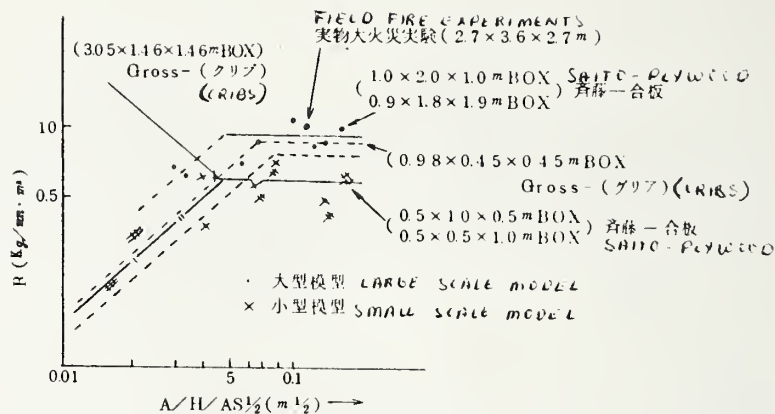 FIELD FIRE EXPERIMENTS
実物大火災実験(2.7×3.6×2.7m)
(3.05×1.46×1.46mBOX)
Gross-(クリブ)
(CRIBS)
(1.0×2.0×1.0mBOX
0.9×1.8×1.9mBOX)
SAITO-PLYWOOD
斉藤一合板
10
0.5
(0.98×0.45×0.45mBOX
Gross-(グリア)(CRIBS)
(0.5×1.0×0.5mBOX
0.5×0.5×1.0mBOX)
斉藤一合板
SAITO-PLYWOOD
R(Kg/mn・m²)
・ 大型模型 LARGE SCALE MODEL
× 小型模型 SMALL SCALE MODEL
0.01 5 0.1
A/H/AS½(m½)→